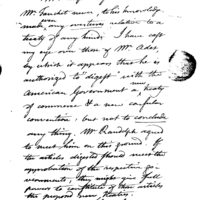 Mr. Fauchet never, to his knowledge
made any overtures relative to a
treaty of any kind. I have cast
my eye over those of Mr. Adet,
by which it appears that he is
authorized to digest with the
American Government a new treaty
of commerce & a new consular
convention, but not to conclude
any thing. Mr. Randolph agreed
to meet him on this ground. If
the articles digested should meet the
approbation of the respective go-
vernments, they might give full
powers to
the proposed new treaty.